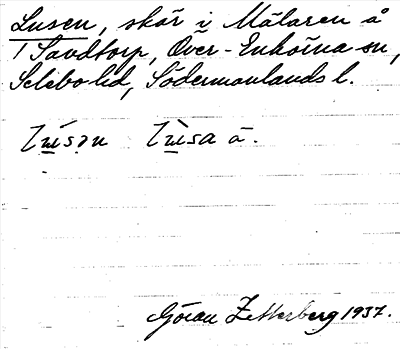 Lusen, skär i Mälaren å
1 Sandtorp, Över-Enhörna sn,
Selebo hd, Södermanlands l.
Göran Zetterberg 1937.